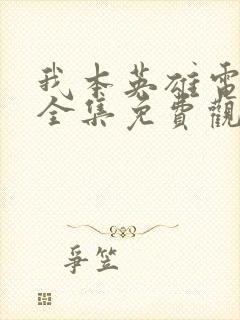 我本英雄電
全集免費觀
爭笠